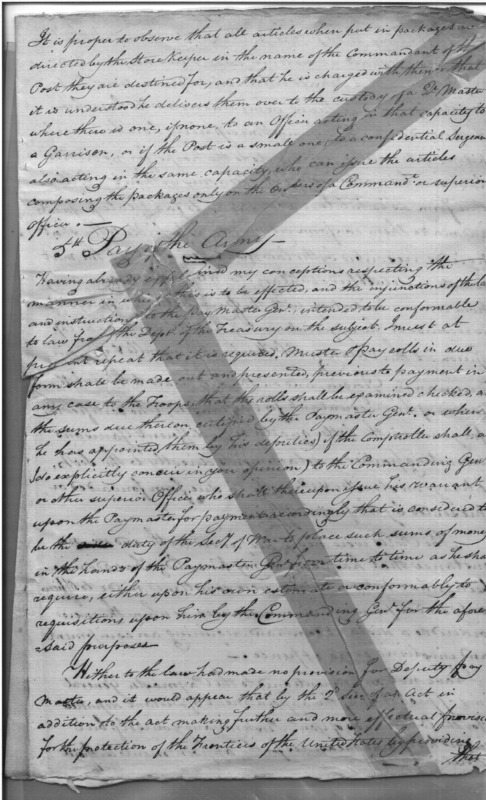 It is proper to observe that all articles when put in packages are
directed by the Store Keeper in the name of the Commandant of the
Post they are destined for, and that he is charged with them, that
it is understood he delivers them over to the custody of a Qr Master
where there is one, if none, to an Officer acting in that capacity to
a Garrison, or if the Post is a small one, to a confidential Sergeant
also acting in the same capacity, who can issue the articles
composing the packages only on the Orders of a Commandt or superior
Officer.
5th Pay of the Army
Having already my conceptions respecting the
manner in which this is to be effected, and the injunctions of the law
and instructions to the Pay Master Genl. intended to be conformable
to law from the Dept. of the Treasury on the subject. I must at
present repeat that it is required, Muster & Pay rolls in due
form shall be made out and presented, previous to payment in
any case to the Troops that the rolls shall be examined checked, and
the sums due thereon certified by the Paymaster Genl. or where
he has appointed them by his deputies) if the Comptroller shall, as
I do explicitly concur in your opinion) to the Commanding Genl
or other superior Officer who shall thereupon issue his warrant
upon the Paymaster for payment accordingly that is considered to
be the duty of the Secy. of War to place such sums of money
in the hands of the Paymaster Genl from time to time as he shall
require, either upon his own estimate or conformably to
requisitions upon him by the Commanding Genl for the afore
=said purposes
Hitherto the law had made no provision for Deputy Pay
Master, and it would appear that by the 2d Sec. of an Act in
addition to the act making further and more effectual provision
for the protection of the Frontiers of the United States by providing
that